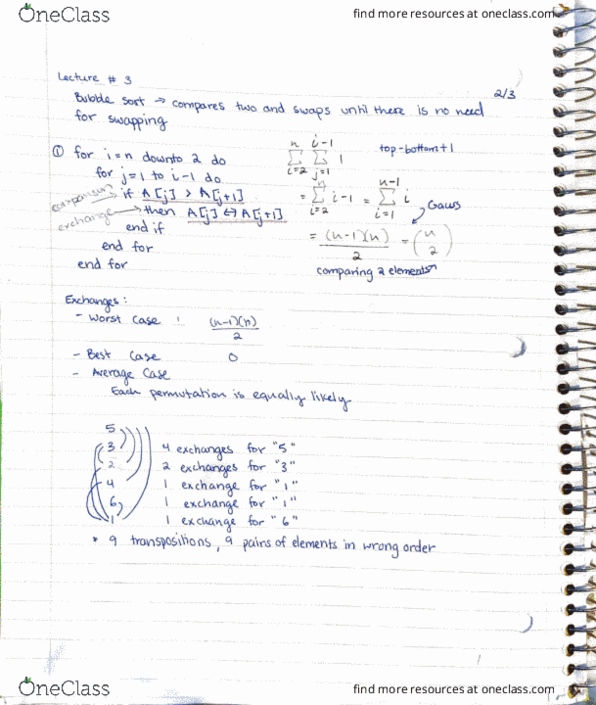 OneClass
find more resources at oneclass.com
Lecture # 3
2/3
Bubble sort → compares two and swaps until there is no need
for swapping
① for i=n downto 2 do
for j=1 to i-1 do
comparison → if A[j] > A[j+1]
exchange → then A[j] ↔ A[j+1]
end if
end for
end for
n i-1
∑ ∑ 1
i=2 j=1
top-bottom+1
n n-1
= ∑ i-1 = ∑ i
i=2 i=1
Gauss
= (n-1)(n) / 2 = (n 2)
comparing 2 elements
Exchanges:
- Worst Case : (n-1)(n) / 2
- Best Case 0
- Average Case
Each permutation is equally likely
5
3 4 exchanges for "5"
2 2 exchanges for "3"
4 1 exchange for "1"
6 1 exchange for "1"
1 1 exchange for "6"
* 9 transpositions, 9 pairs of elements in wrong order
OneClass
find more resources at oneclass.com